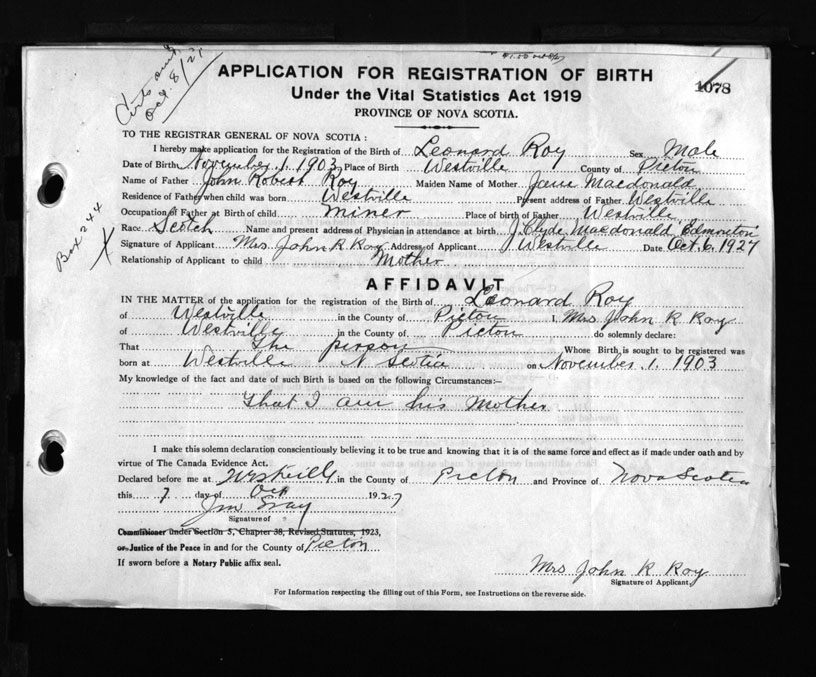 Certs out
Oct 8/27
APPLICATION FOR REGISTRATION OF BIRTH
1078
Under the Vital Statistics Act 1919
PROVINCE OF NOVA SCOTIA.
TO THE REGISTRAR GENERAL OF NOVA SCOTIA :
I hereby make application for the Registration of the Birth of Leonard Roy Sex Male
Date of Birth November 1. 1903 Place of Birth Westville County of Pictou
Name of Father John Robert Roy Maiden Name of Mother Jane Macdonald
Residence of Father when child was born Westville Present address of Father Westville
Occupation of Father at Birth of child miner Place of birth of Father Westville
Race Scotch Name and present address of Physician in attendance at birth J. Clyde Macdonald Edmonton
Signature of Applicant Mrs John R Roy Address of Applicant Westville Date Oct. 6. 1927
Relationship of Applicant to child Mother
Box 244
X
AFFIDAVIT
IN THE MATTER of the application for the registration of the Birth of Leonard Roy
of Westville in the County of Pictou I, Mrs John R Roy
of Westville in the County of Pictou do solemnly declare:
That The person Whose Birth is sought to be registered was
born at Westville N Scotia on November 1. 1903
My knowledge of the fact and date of such Birth is based on the following Circumstances:—
That I am his Mother
I make this solemn declaration conscientiously believing it to be true and knowing that it is of the same force and effect as if made under oath and by
virtue of The Canada Evidence Act.
Declared before me at Westville in the County of Pictou and Province of Nova Scotia
this 7 day of Oct 1927
Jm Gray
Signature of
Commissioner under Section 5, Chapter 38, Revised Statutes, 1923,
or Justice of the Peace in and for the County of Pictou
If sworn before a Notary Public affix seal.
Mrs John R Roy
Signature of Applicant
For Information respecting the filling out of this Form, see Instructions on the reverse side.